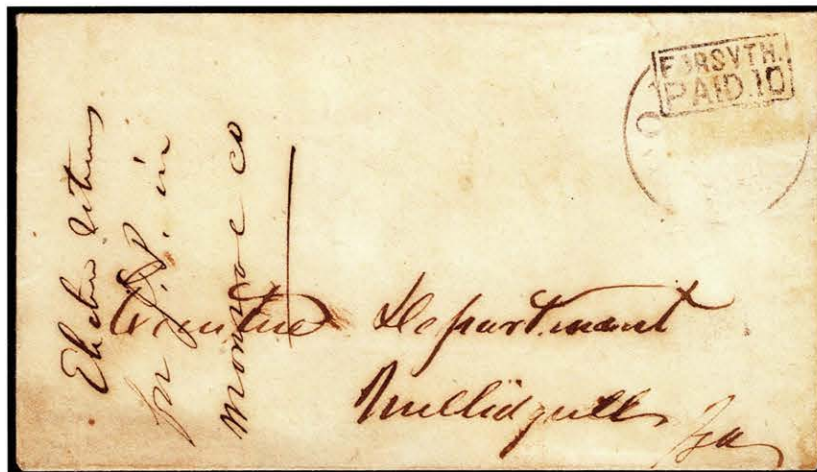 FORSYTH.
PAID.10
Election Returns
for J.P. in
Monroe co
Executive Department
Millidgeville Ga